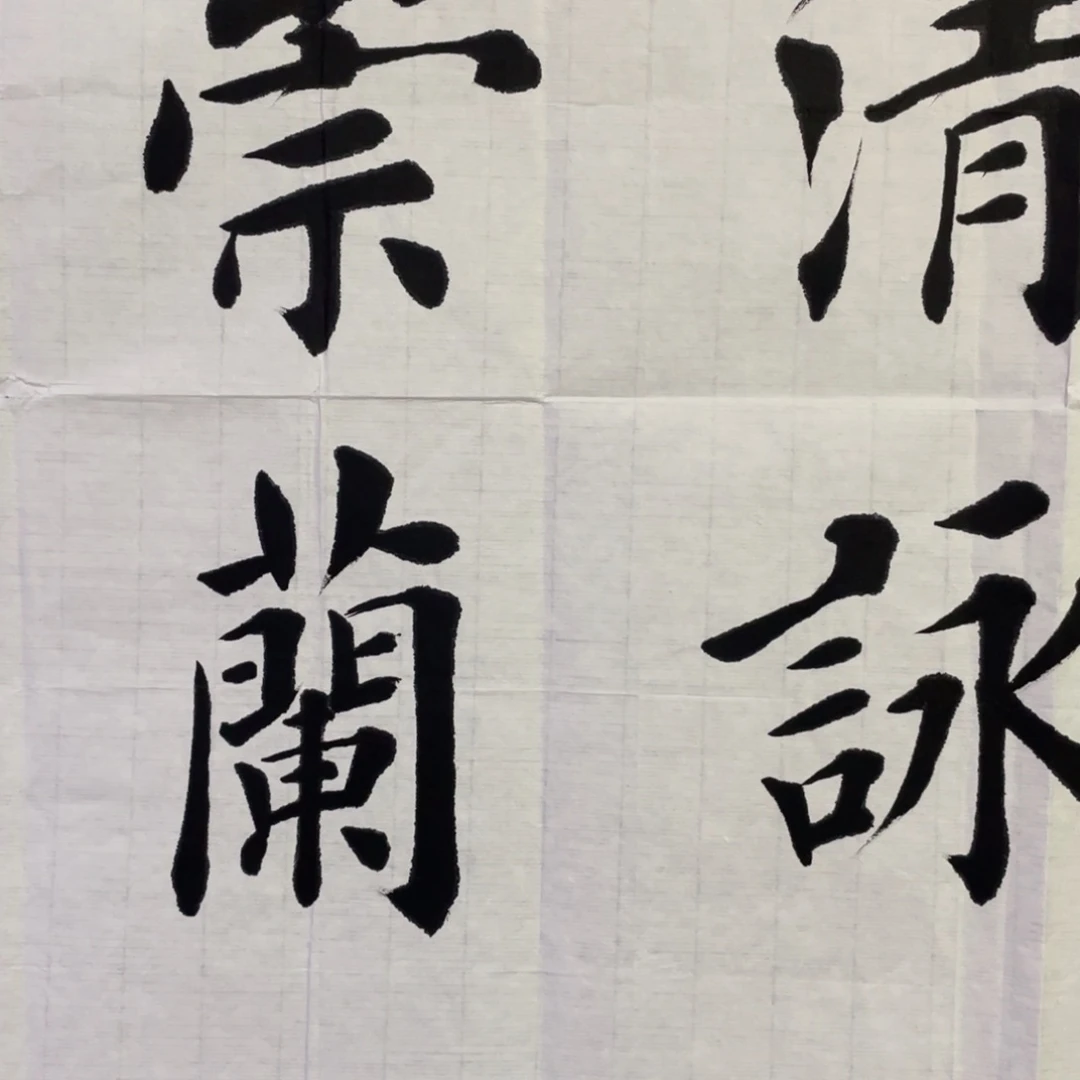 清詠
崇蘭